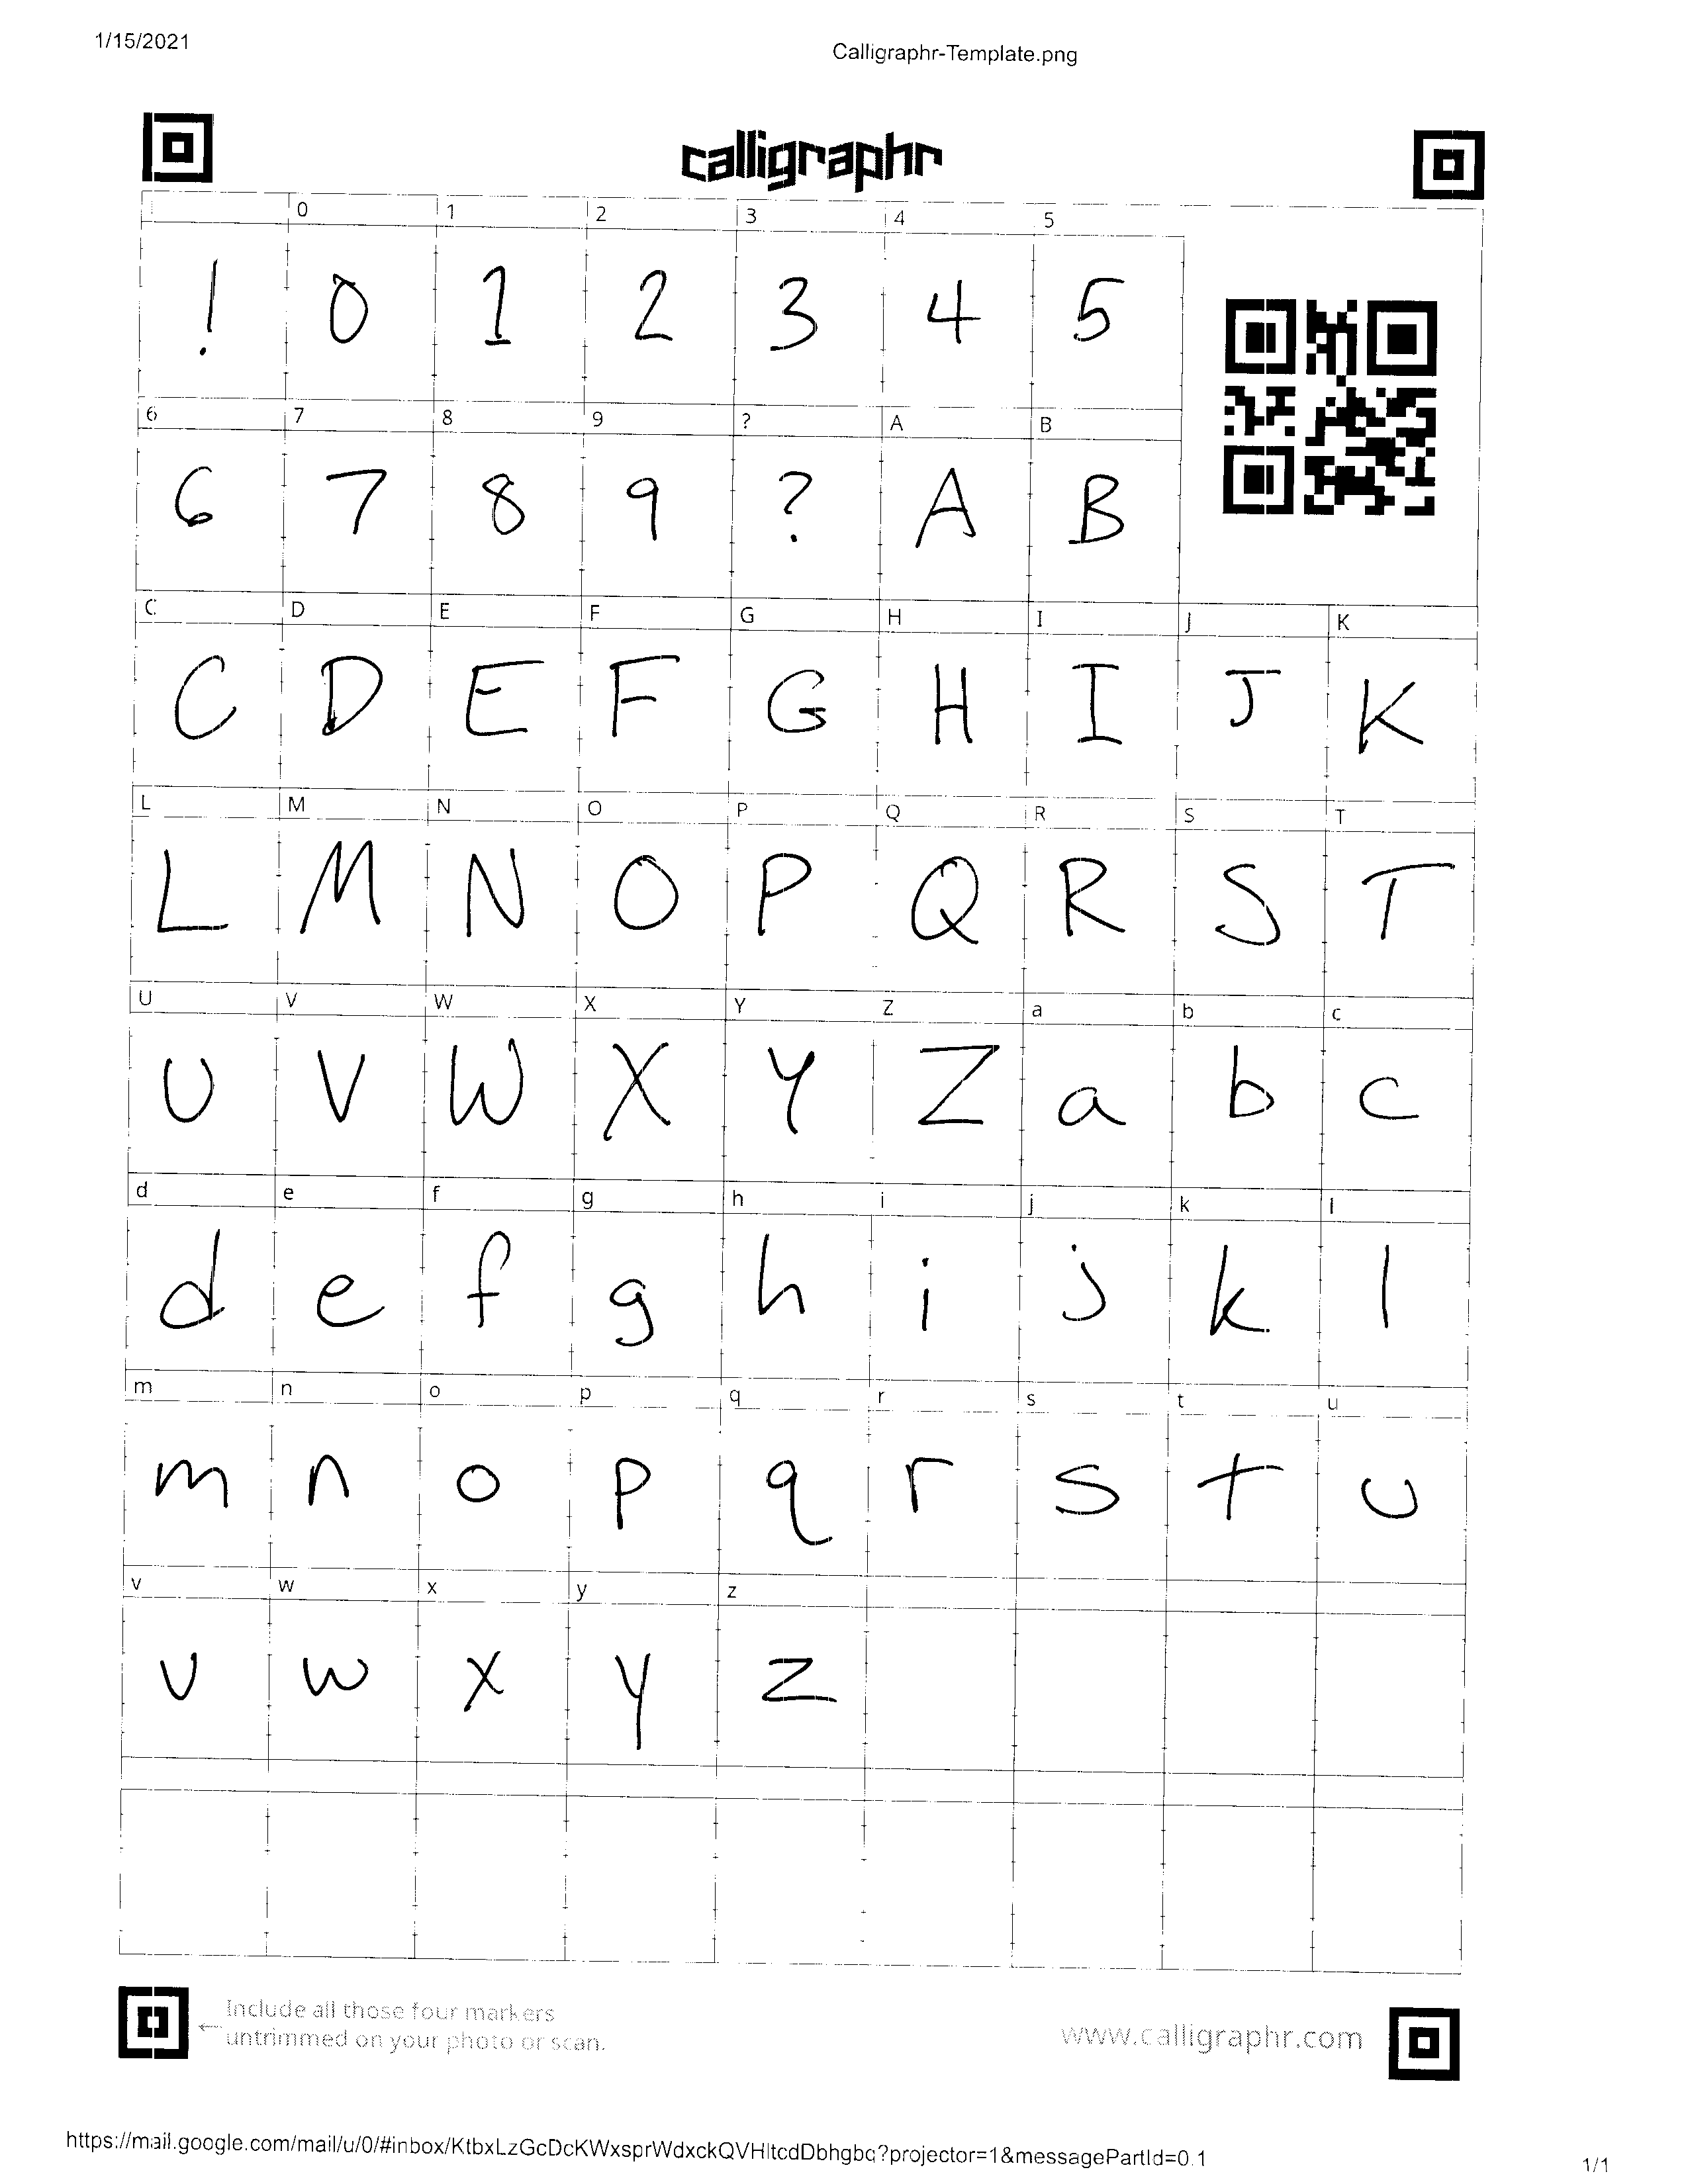 1/15/2021
Calligraphr-Template.png
calligraphr
0 1 2 3 4 5
! 0 1 2 3 4 5
6 7 8 9 ? A B
6 7 8 9 ? A B
C D E F G H I J K
C D E F G H I J K
L M N O P Q R S T
L M N O P Q R S T
U V W X Y Z a b c
U V W X Y Z a b c
d e f g h i j k l
d e f g h i j k l
m n o p q r s t u
m n o p q r s t u
v w x y z
v w x y z
Include all those four markers
← untrimmed on your photo or scan.
www.calligraphr.com
https://mail.google.com/mail/u/0/#inbox/KtbxLzGcDcKWxsprWdxckQVHltcdDbhgbq?projector=1&messagePartId=0.1
1/1